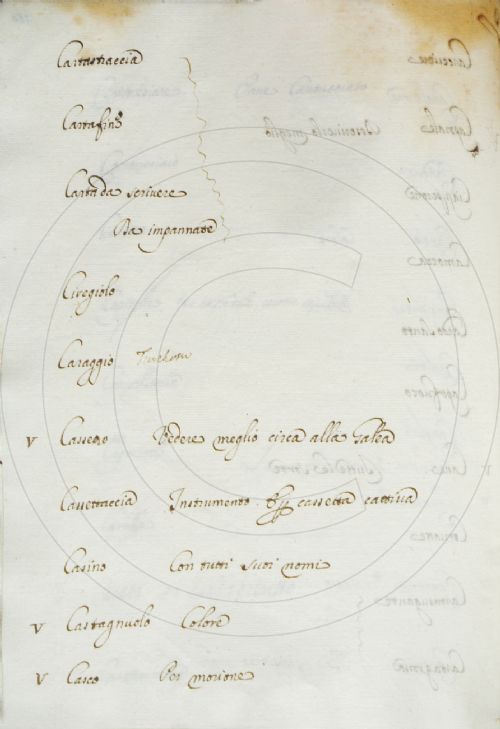 Cartastraccia
Cartafina
Carta da scrivere
Da impannate
Ciregiolo
Caraggio
v Cassero Vedere meglio circa alla Galea
Cassettaccia Instrumento cassetta cattiva
Casino Con tutti suoi nomi
v Castagnuolo Colore
v Casco Per morione